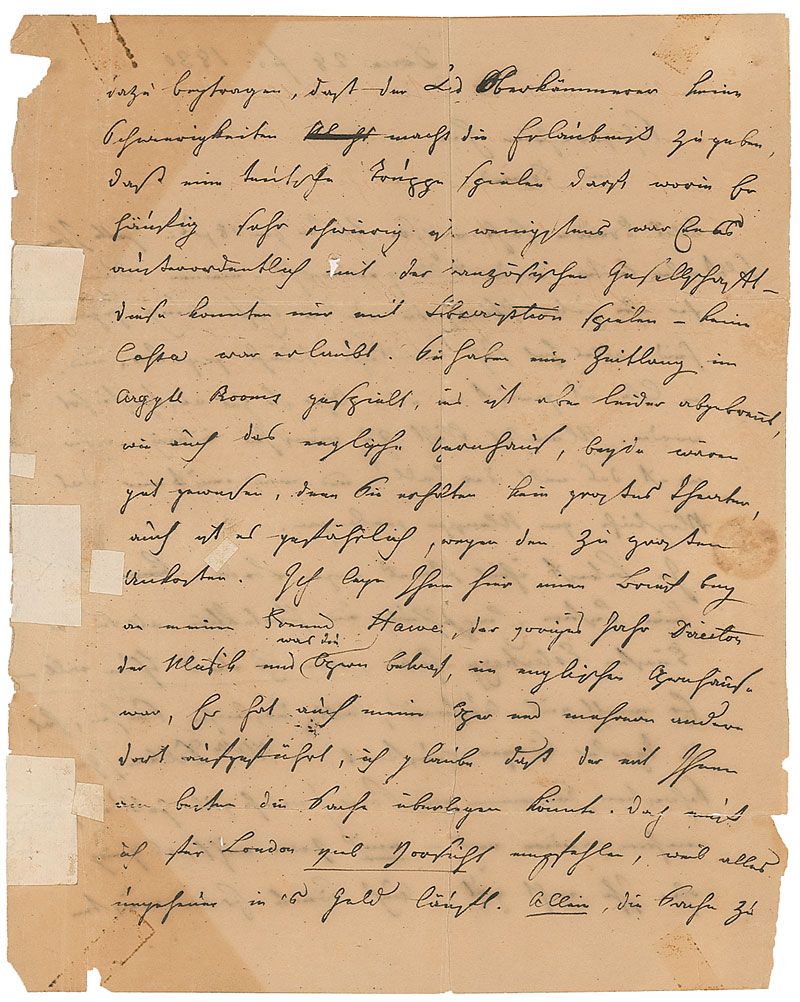 dazu beytragen, daß der Lord Oberkämmerer keine
Schwierigkeiten macht die Erlaubniß zu geben,
daß eine teutsche Truppe spielen darf worin Er
häufig sehr schwierig ist wenigstens war Er es
außerordentlich mit der französischen Gesellschaft –
diese konnten nur mit Subscription spielen – keine
Cassa war erlaubt. Sie haben eine Zeitlang im
Argyll Rooms gespielt, ist aber leider abgebrannt,
wie auch das englische Opernhaus, beyde wären
gut gewesen, denn Sie erhalten kein großes Theater,
auch ist es gefährlich, wegen den zu großen
Unkosten. Ich lege Ihnen hier einen Brief bey
an meinen Freund Hawes, der voriges Jahr Director
der Musik und was die Opern betraf, im englischen Opernhause
war, Er hat auch meine Oper und mehrere andere
dort aufgeführt, ich glaube daß der mit Ihnen
am besten die Sache überlegen könnte. Doch muß
ich für London viel Vorsicht empfehlen, weil alles
ungeheuer in's Geld läuft. Allein, die Sache zu